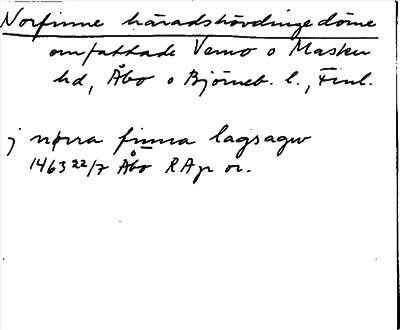 Norfinne häradshövdingedöme
omfattade Vemo o Masku
hd, Åbo o Björneb. l., Finl.
j nørra finna lagsagw
1463 22/7 Åbo RAp or.